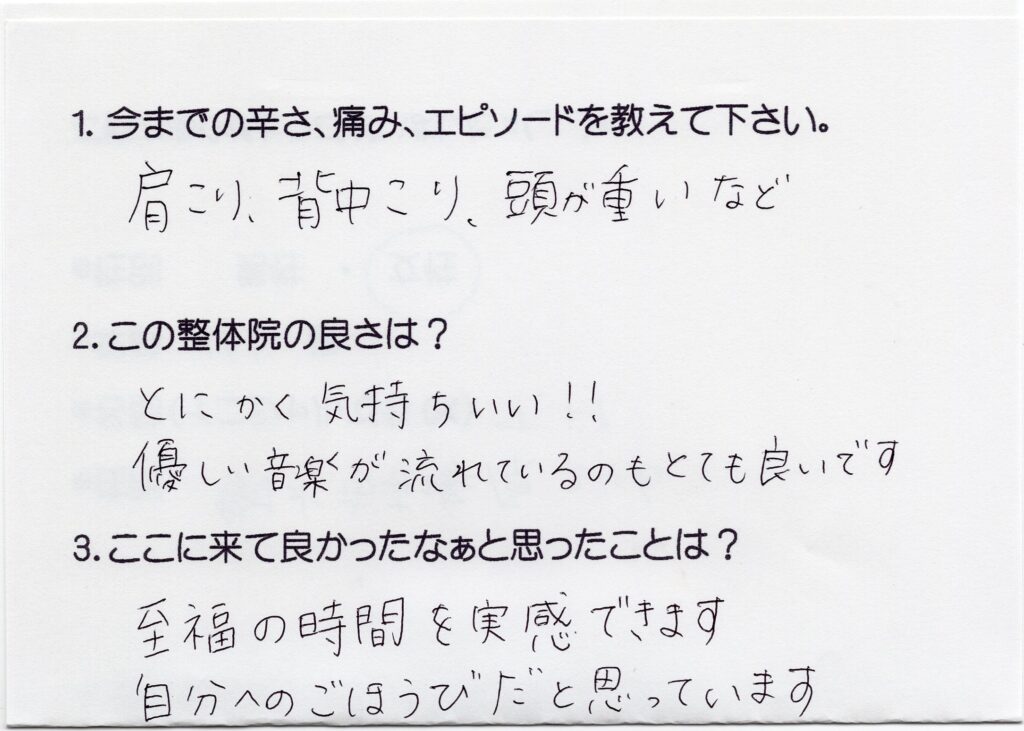 1. 今までの辛さ、痛み、エピソードを教えて下さい。
肩こり、背中こり、頭が重いなど
2. この整体院の良さは？
とにかく気持ちいい!!
優しい音楽が流れているのもとても良いです
3. ここに来て良かったなぁと思ったことは？
至福の時間を実感できます
自分へのごほうびだと思っています